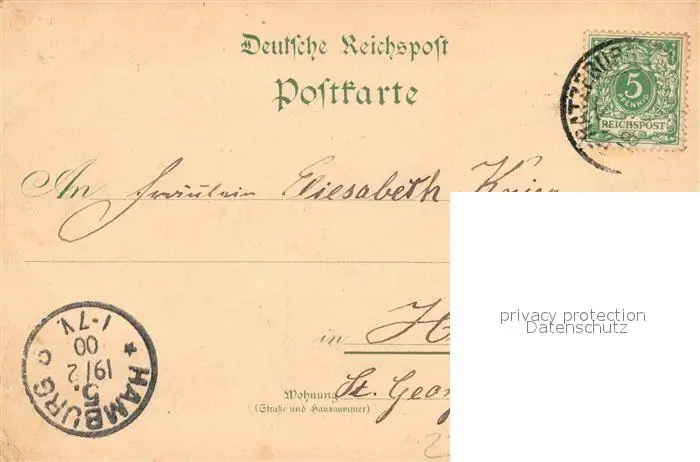 Deutsche Reichspost
Postkarte
5
PFENNIG
REICHSPOST
RATZEBUR
An Fräulein Eliesabeth
privacy protection
Datenschutz
in H
Wohnung St. Geor
(Straße und Hausnummer)
HAMBURG
5.
19/2
00
1-7V.